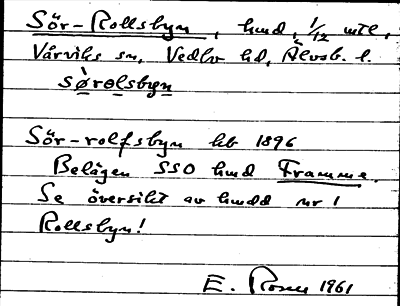 Sör-Rollsbyn, hmd, 1/12 mtl,
Vårviks sn, Vedbo hd, Älvsb. l.
sø̀rolsbyn
Sör-rolfsbyn hb 1896
Belägen SSO hmd Framme.
Se översikt av hmdd nr 1
Rollsbyn!
E. Rosen 1961